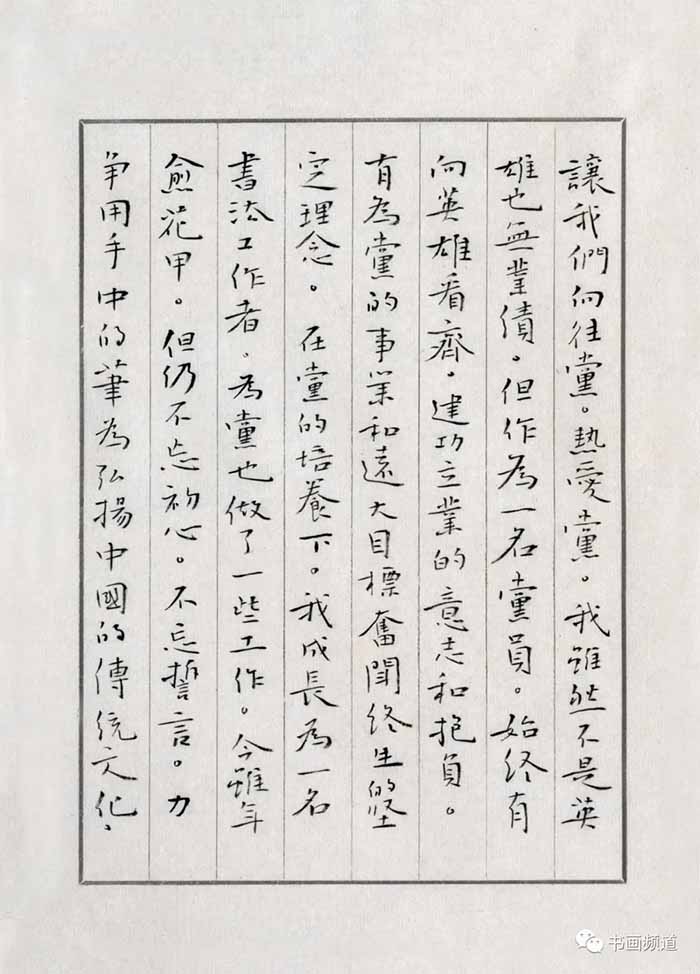 讓我們向往黨。熱愛黨。我雖然不是英
雄也無業績。但作為一名黨員。始終有
向英雄看齊。建功立業的意志和抱負。
有為黨的事業和遠大目標奮鬭終生的堅
定理念。在黨的培養下。我成長為一名
書法工作者。為黨也做了一些工作。今雖年
愈花甲。但仍不忘初心。不忘誓言。力
争用手中的筆為弘揚中國的傳統文化、
书画频道